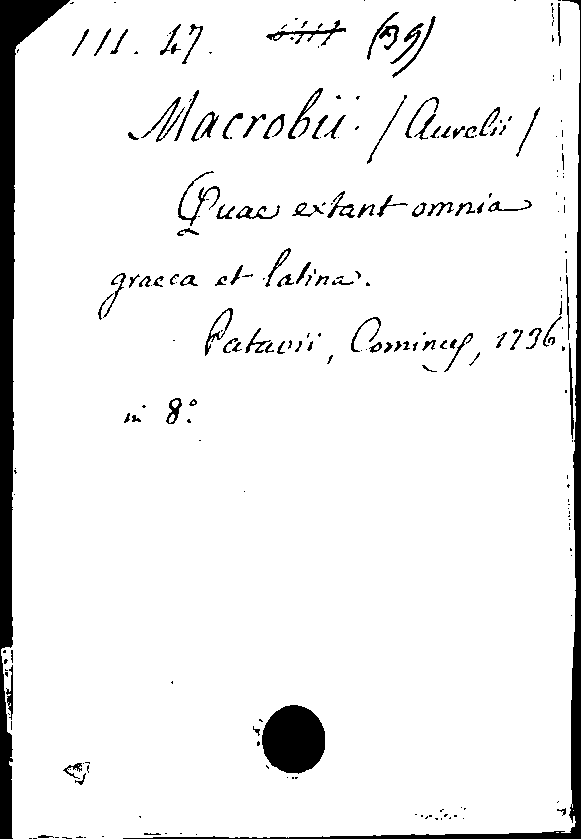 III. 47. (39)
Macrobii. / Aurelii /
Quae extant omnia
graeca et latina.
Patavii, Cominus, 1736.
in 8.°